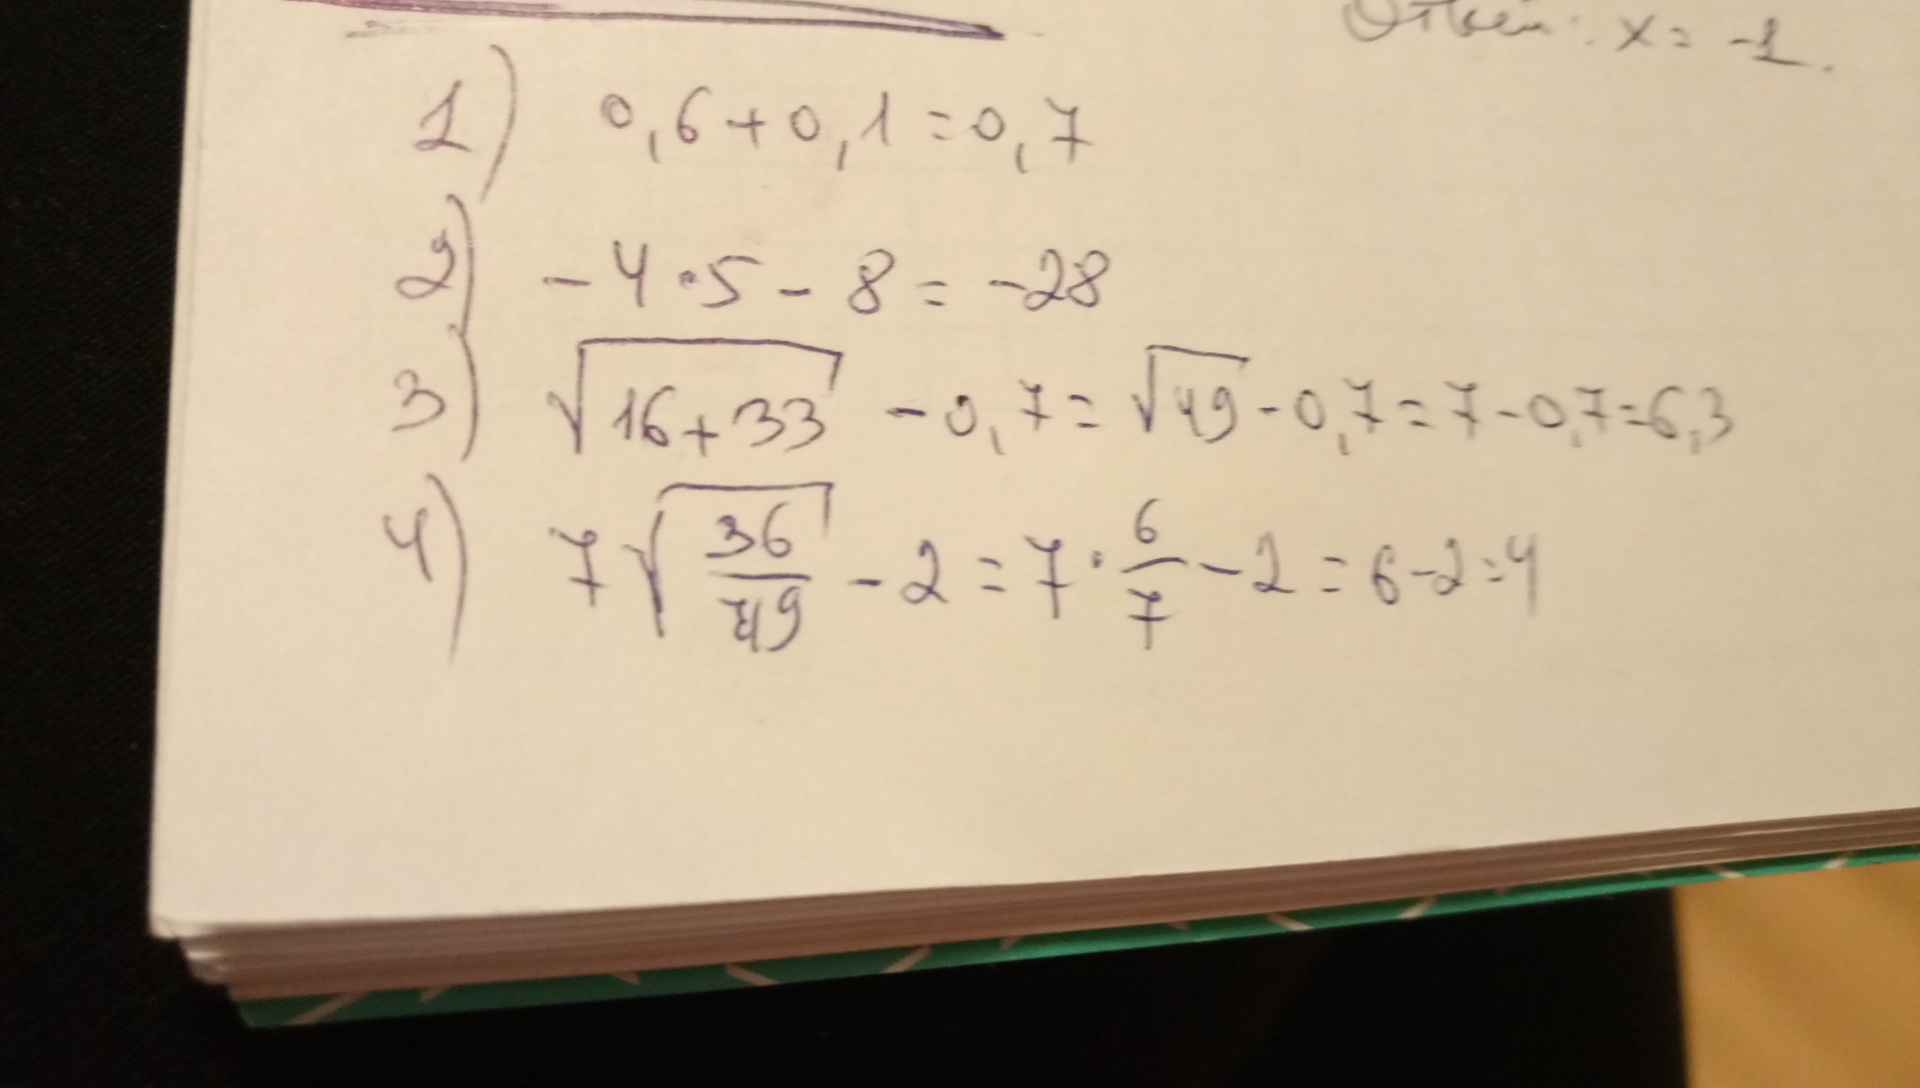 Ответ: x = -1.
1) 0,6+0,1=0,7
2) -4·5-8=-28
3) √16+33 -0,7=√49-0,7=7-0,7=6,3
4) 7√36/49 -2=7·6/7-2=6-2=4